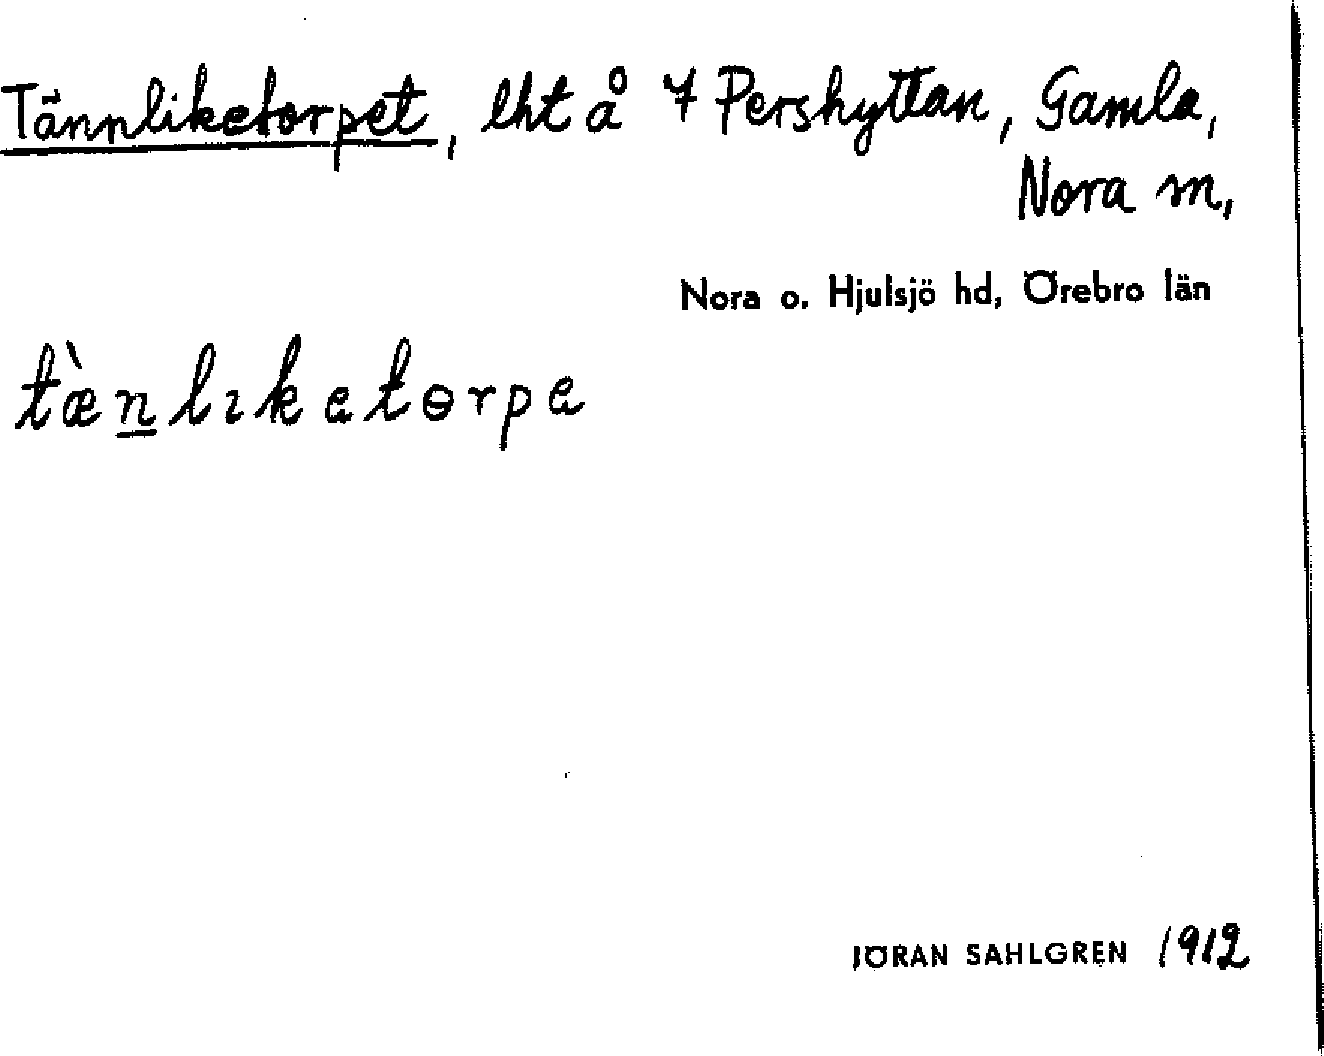 Tännliketorpet, lht å 7 Pershyttan, Gamla,
Nora m,
Nora o. Hjulsjö hd, Örebro län
tæ̀n̲lıketɵrpe
JÖRAN SAHLGREN 1912